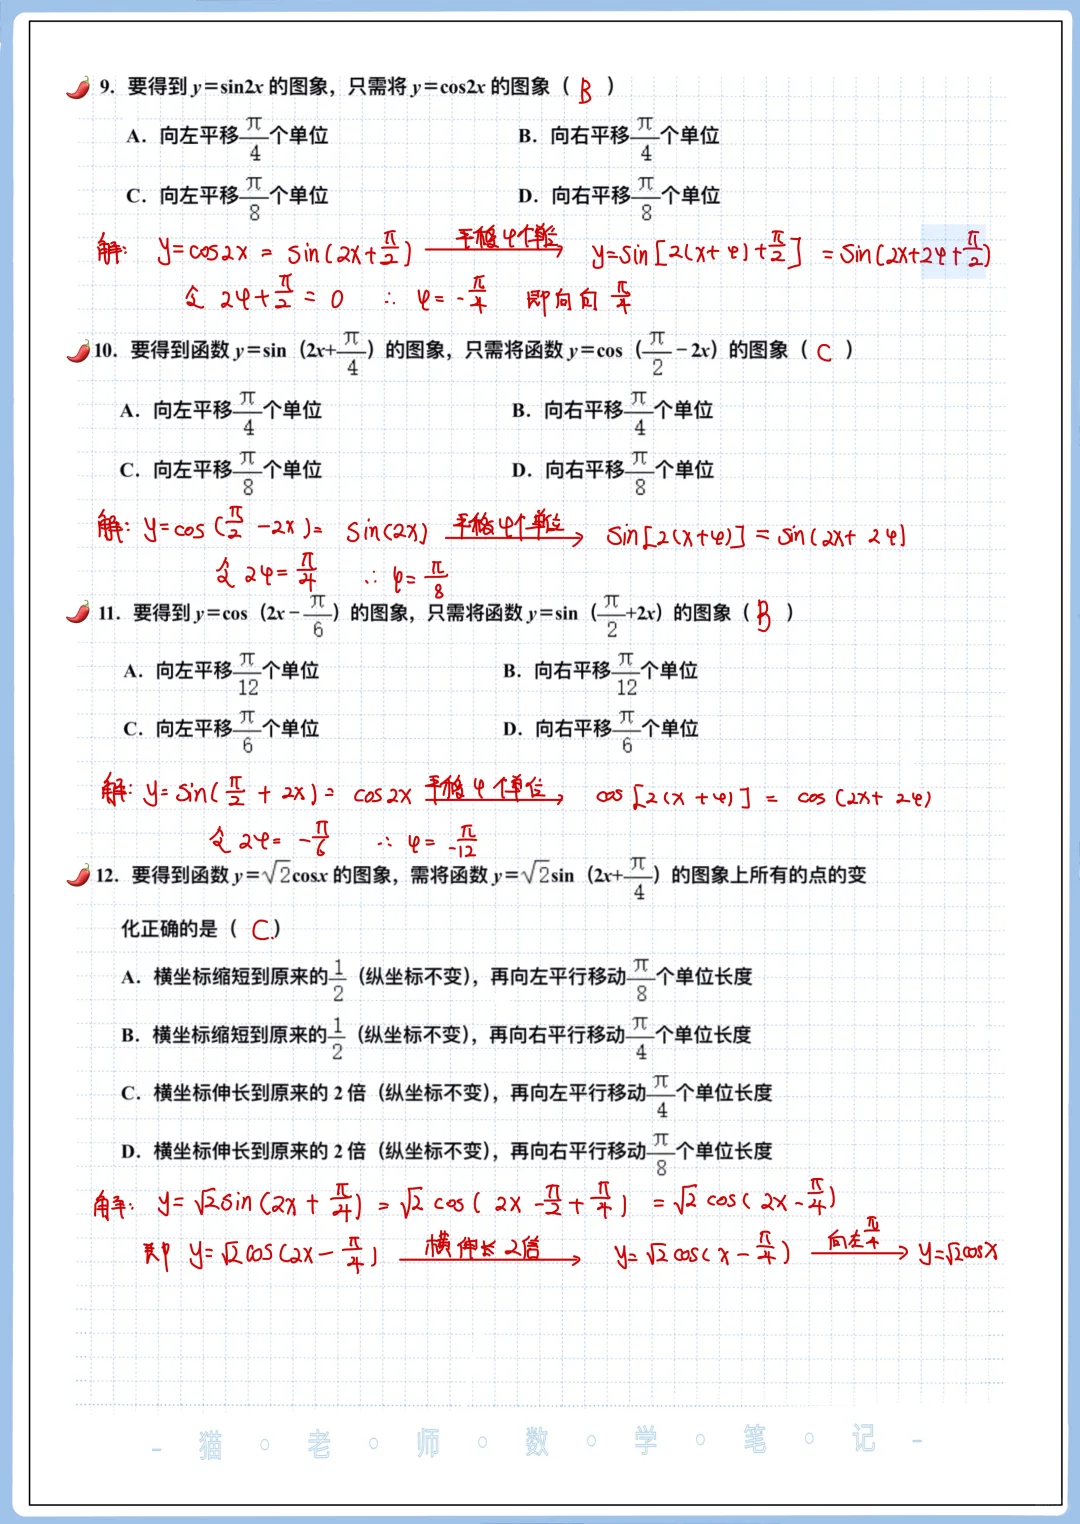 9. 要得到 y＝sin2x 的图象，只需将 y＝cos2x 的图象（ B ）
A. 向左平移π/4个单位 B. 向右平移π/4个单位
C. 向左平移π/8个单位 D. 向右平移π/8个单位
解: y=cos2x = sin(2x+π/2) 平移φ个单位→ y=sin[2(x+φ)+π/2] = sin(2x+2φ+π/2)
令 2φ+π/2 = 0 ∴ φ= -π/4 即向向 π/4
10. 要得到函数 y＝sin（2x+π/4）的图象，只需将函数 y＝cos（π/2－2x）的图象（ C ）
A. 向左平移π/4个单位 B. 向右平移π/4个单位
C. 向左平移π/8个单位 D. 向右平移π/8个单位
解: y=cos(π/2-2x)= sin(2x) 平移φ个单位→ sin[2(x+φ)] = sin(2x+2φ)
令 2φ=π/4 ∴ φ=π/8
11. 要得到 y＝cos（2x－π/6）的图象，只需将函数 y＝sin（π/2+2x）的图象（ B ）
A. 向左平移π/12个单位 B. 向右平移π/12个单位
C. 向左平移π/6个单位 D. 向右平移π/6个单位
解: y= sin(π/2 + 2x)= cos2x 平移φ个单位→ cos[2(x+φ)] = cos(2x+2φ)
令 2φ= -π/6 ∴ φ= π/-12
12. 要得到函数 y＝√2cosx 的图象，需将函数 y＝√2sin（2x+π/4）的图象上所有的点的变
化正确的是（ C ）
A. 横坐标缩短到原来的1/2（纵坐标不变），再向左平行移动π/8个单位长度
B. 横坐标缩短到原来的1/2（纵坐标不变），再向右平行移动π/4个单位长度
C. 横坐标伸长到原来的 2 倍（纵坐标不变），再向左平行移动π/4个单位长度
D. 横坐标伸长到原来的 2 倍（纵坐标不变），再向右平行移动π/8个单位长度
解: y= √2sin(2x+π/4) = √2 cos(2x-π/2+π/4) = √2 cos(2x-π/4)
即 y=√2cos(2x-π/4) 横伸长2倍→ y=√2cos(x-π/4) 向左π/4→ y=√2cosx
- 猫 · 老 · 师 · 数 · 学 · 笔 · 记 -